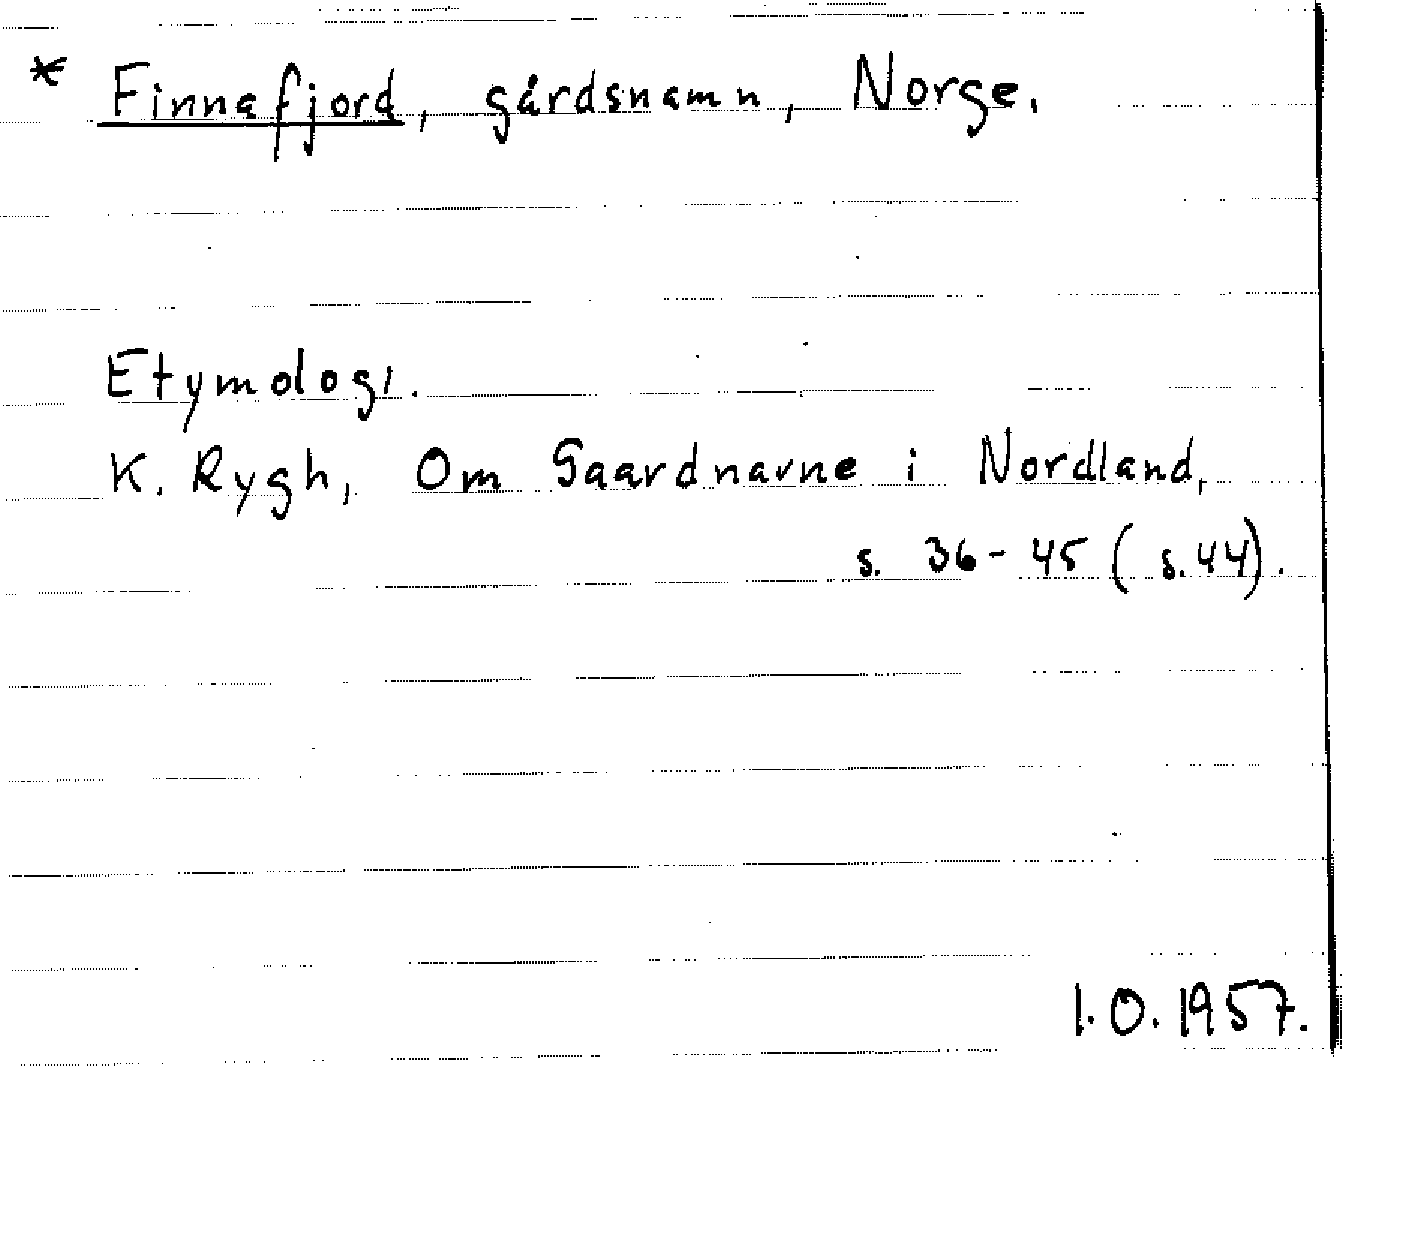 * Finnafjord, gårdsnamn, Norge.
Etymologi.
K. Rygh, Om Gaardnavne i Nordland,
s. 36-45 (s.44).
I.O. 1957.